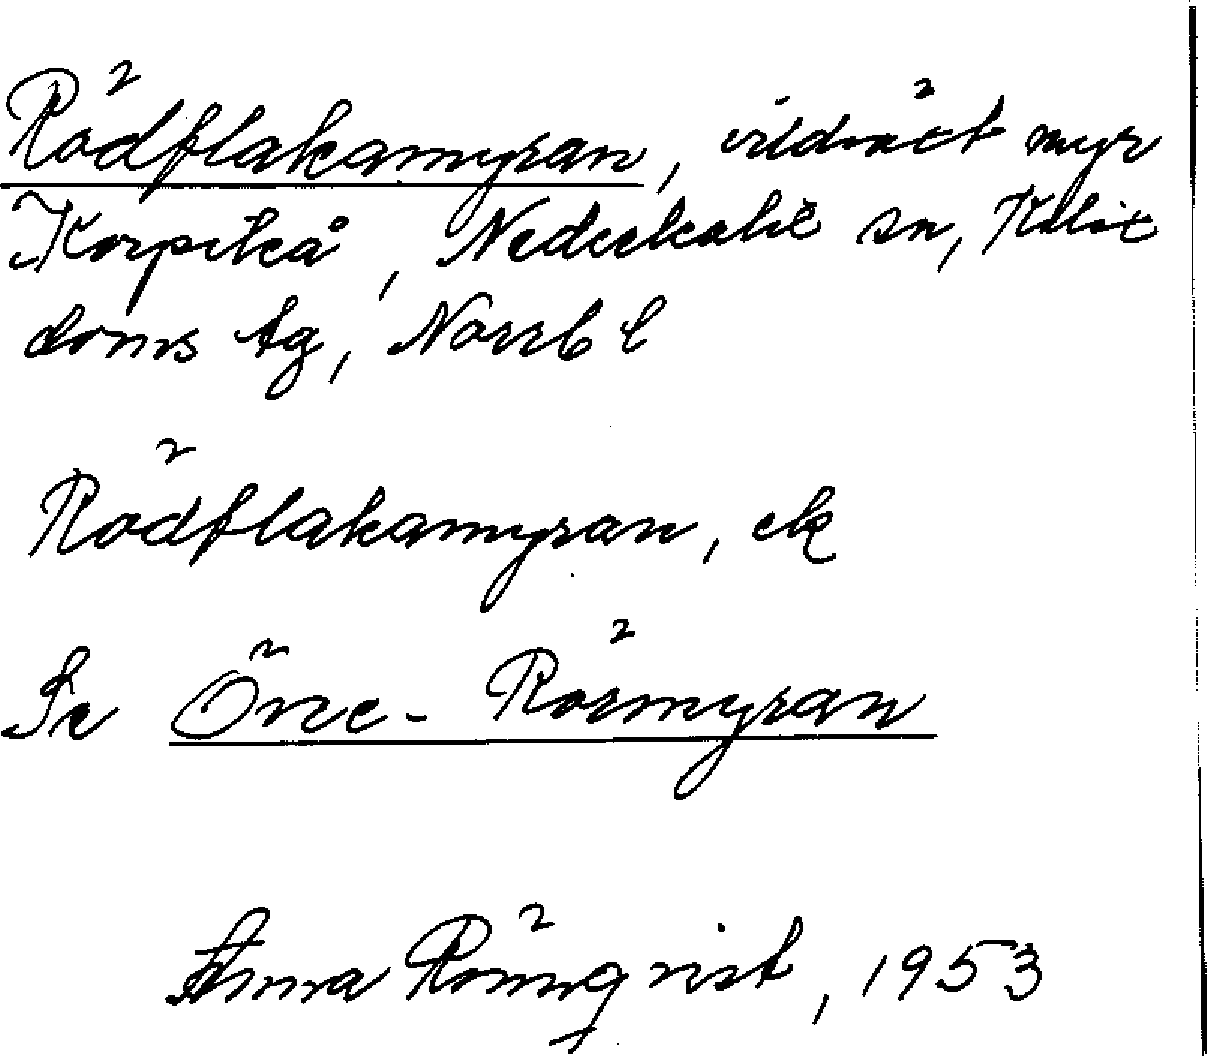 Rödflakamyran, vildväxt myr
Korpikå, Nederkalix sn, Kalix
doms tg, Norrb l
Rödflakamyran, ek
Se Övre-Rörmyran
Anna Rönnqvist, 1953